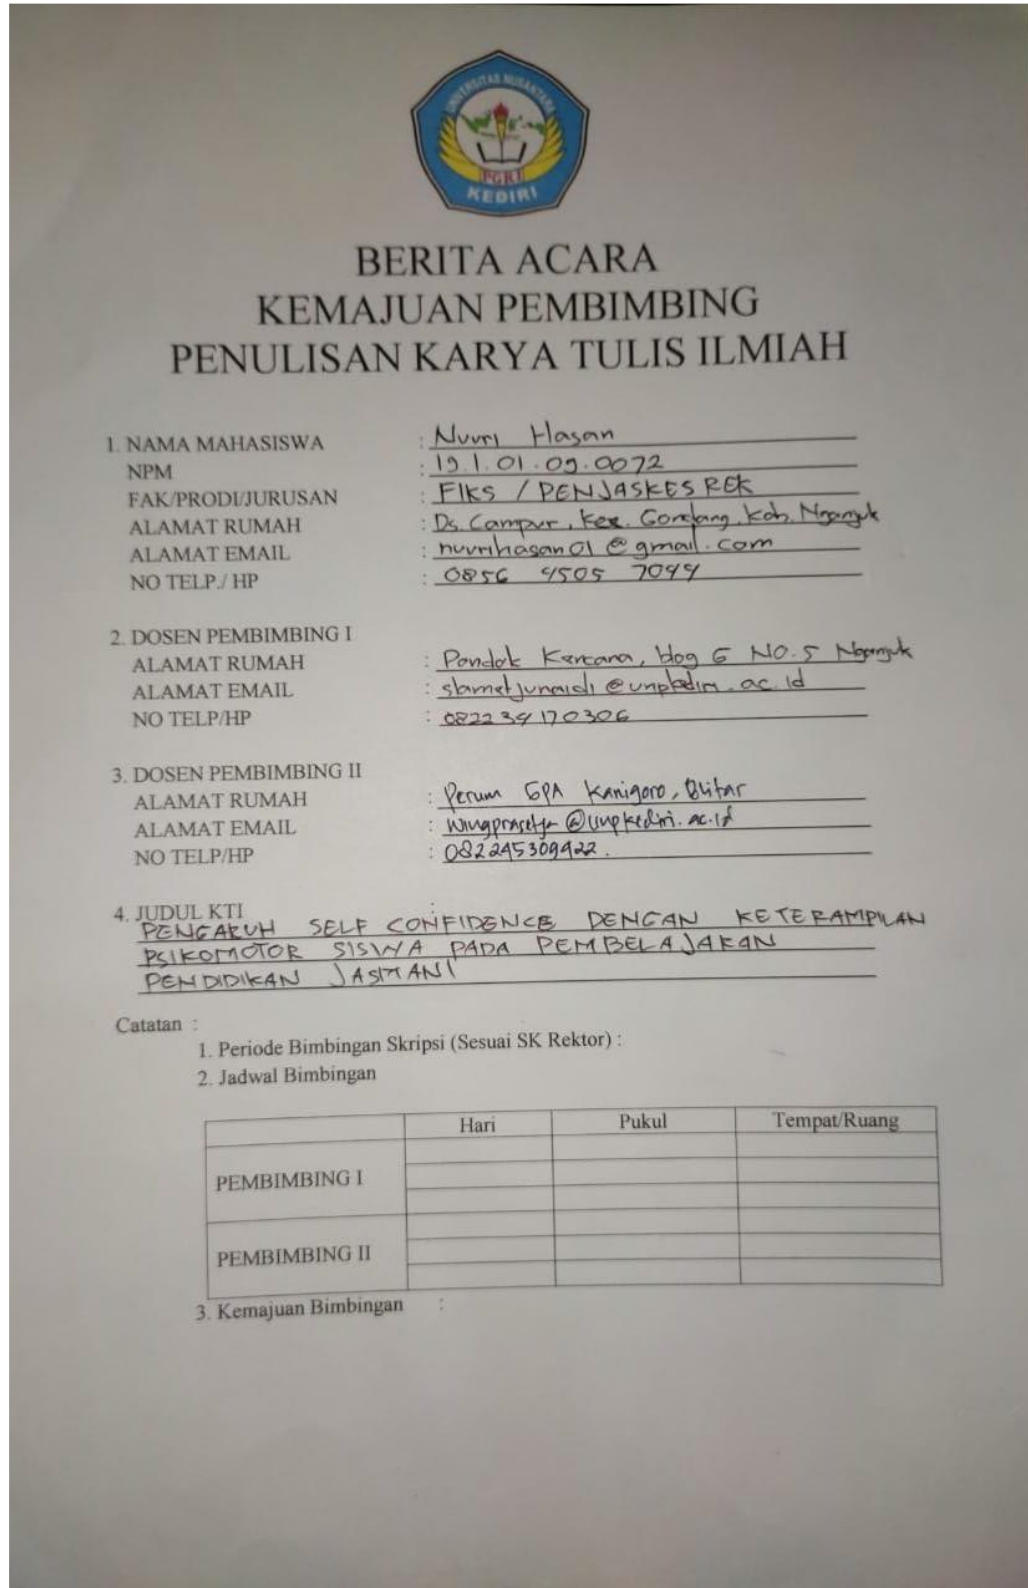 UNIVERSITAS NUSANTARA
PGRI
KEDIRI
BERITA ACARA
KEMAJUAN PEMBIMBING
PENULISAN KARYA TULIS ILMIAH
1. NAMA MAHASISWA : Nuuri Hasan
NPM : 19.1.01.09.0072
FAK/PRODI/JURUSAN : FIKS / PENJASKESREK
ALAMAT RUMAH : Ds. Campur, Kec. Gondang, Kab. Nganjuk
ALAMAT EMAIL : nuurihasan01@gmail.com
NO TELP./ HP : 0856 4505 7044
2. DOSEN PEMBIMBING I
ALAMAT RUMAH : Pondok Kencana, blog G NO.5 Nganjuk
ALAMAT EMAIL : slametjunaidi@unpkediri.ac.id
NO TELP/HP : 082234170306
3. DOSEN PEMBIMBING II
ALAMAT RUMAH : Perum GPA Kanigoro, Blitar
ALAMAT EMAIL : wingprasetya@unpkediri.ac.id
NO TELP/HP : 082245309422.
4. JUDUL KTI :
PENGARUH SELF CONFIDENCE DENGAN KETERAMPILAN
PSIKOMOTOR SISWA PADA PEMBELAJARAN
PENDIDIKAN JASMANI
Catatan :
1. Periode Bimbingan Skripsi (Sesuai SK Rektor) :
2. Jadwal Bimbingan
Hari Pukul Tempat/Ruang
PEMBIMBING I
PEMBIMBING II
3. Kemajuan Bimbingan :